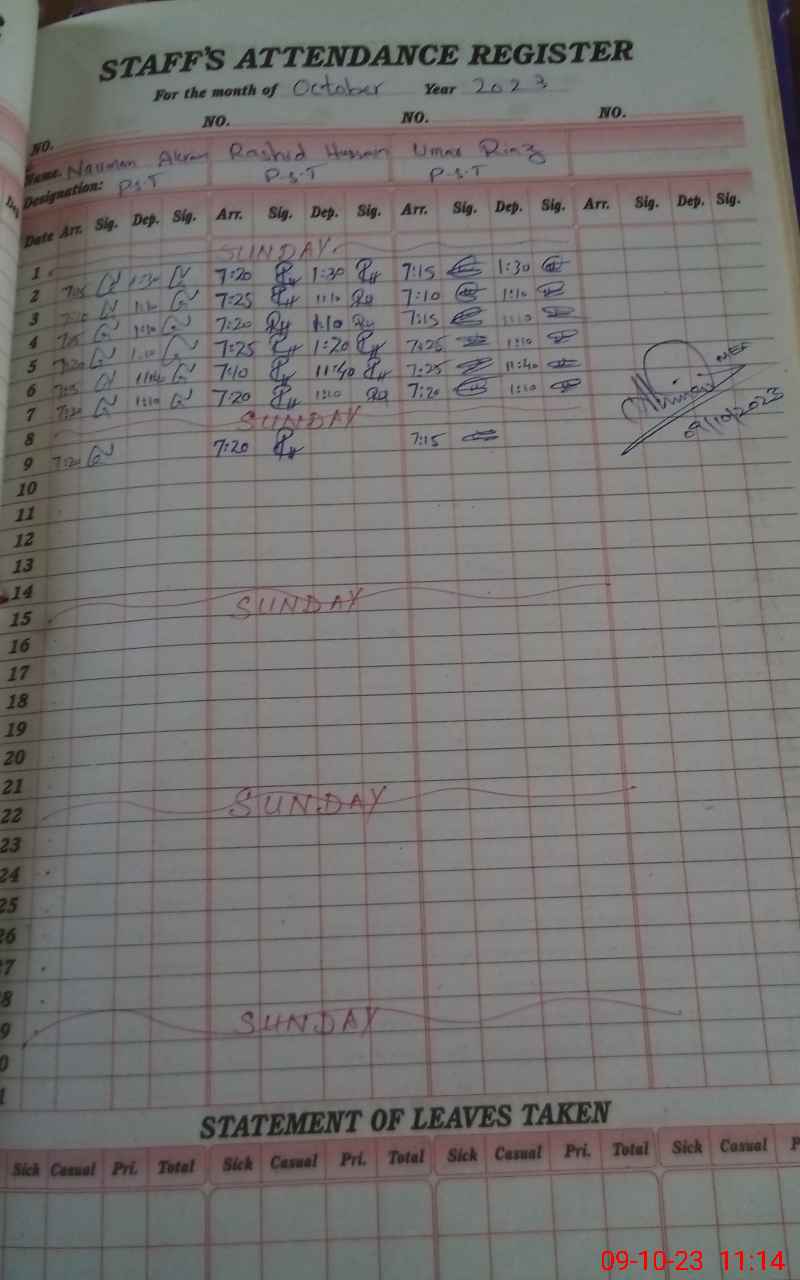 STAFF'S ATTENDANCE REGISTER
For the month of October Year 2023
NO. NO. NO. NO.
Name. Nauman Akram Rashid Hussain Umar Riaz
Designation: P.S.T P.S.T P.S.T
Date Arr. Sig. Dep. Sig. Arr. Sig. Dep. Sig. Arr. Sig. Dep. Sig. Arr. Sig. Dep. Sig.
1 SUNDAY
2 7:15 1:30 7:20 1:30 7:15 1:30
3 1:10 7:25 1:10 7:10 1:10
4 7:15 1:10 7:20 1:10 7:15 1:10
5 7:20 1:10 7:25 1:20 7:25 1:10
6 7:15 11:40 7:10 11:40 7:25 11:40
7 7:20 1:10 7:20 1:10 7:20 1:10
8 SUNDAY
9 7:20 7:20 7:15
09/10/2023
10
11
12
13
14
15 SUNDAY
16
17
18
19
20
21
22 SUNDAY
23
24
25
26
7
8
9 SUNDAY
0
1
STATEMENT OF LEAVES TAKEN
Sick Casual Pri. Total Sick Casual Pri. Total Sick Casual Pri. Total Sick Casual P
09-10-23 11:14